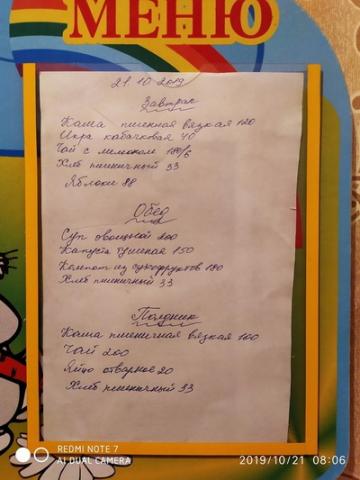 МЕНЮ
21.10.2019
Завтрак
Каша пшенная вязкая 120
Икра кабачковая 40
Чай с лимоном 180/5
Хлеб пшеничный 33
Яблоки 88
Обед
Суп овощной 200
Капуста тушеная 150
Компот из сухофруктов 180
Хлеб пшеничный 33
Полдник
Каша пшеничная вязкая 100
Чай 200
Яйцо отварное 20
Хлеб пшеничный 33
REDMI NOTE 7
AI DUAL CAMERA
2019/10/21 08:06